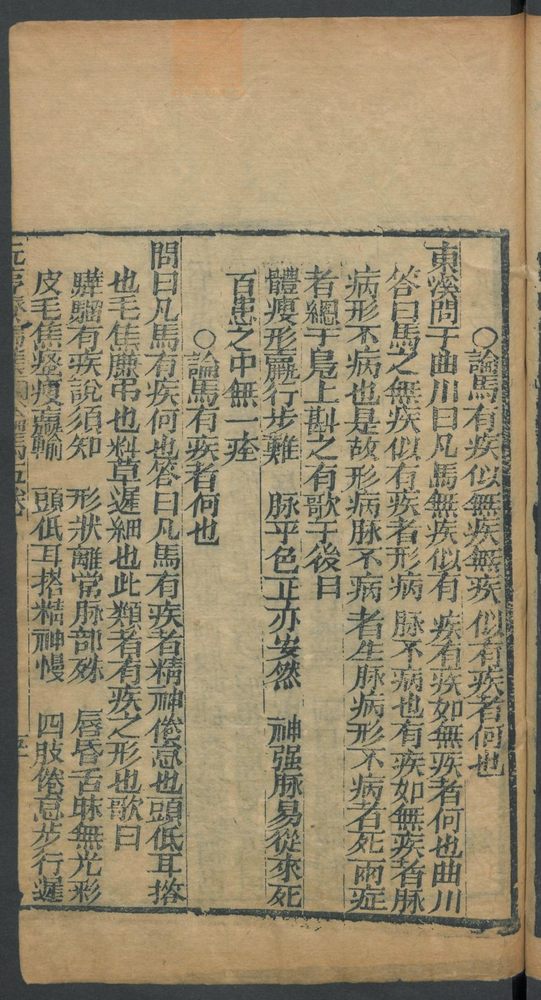 ○論馬有疾似無疾無疾似有疾者何也
東溪問于曲川曰凡馬無疾似有疾有疾如無疾者何也曲川
答曰馬之無疾似有疾者形病脉不病也有疾如無疾者脉
病形不病也是故形病脉不病者生脉病形不病者死兩症
者總于鳧上斟之有歌于後曰
體瘦形羸行步難 脉平色正亦安然 神强脉易從來死
百患之中無一痊
○論馬有疾者何也
問曰凡馬有疾何也答曰凡馬有疾者精神倦怠也頭低耳搭
也毛焦膁吊也料草遲細也此類者有疾之形也歌曰
驊騮有疾說須知 形狀離常脉部殊 唇昏舌昧無光彩
皮毛焦瘦羸輸 頭低耳搭精神慢 四肢倦怠步行遲